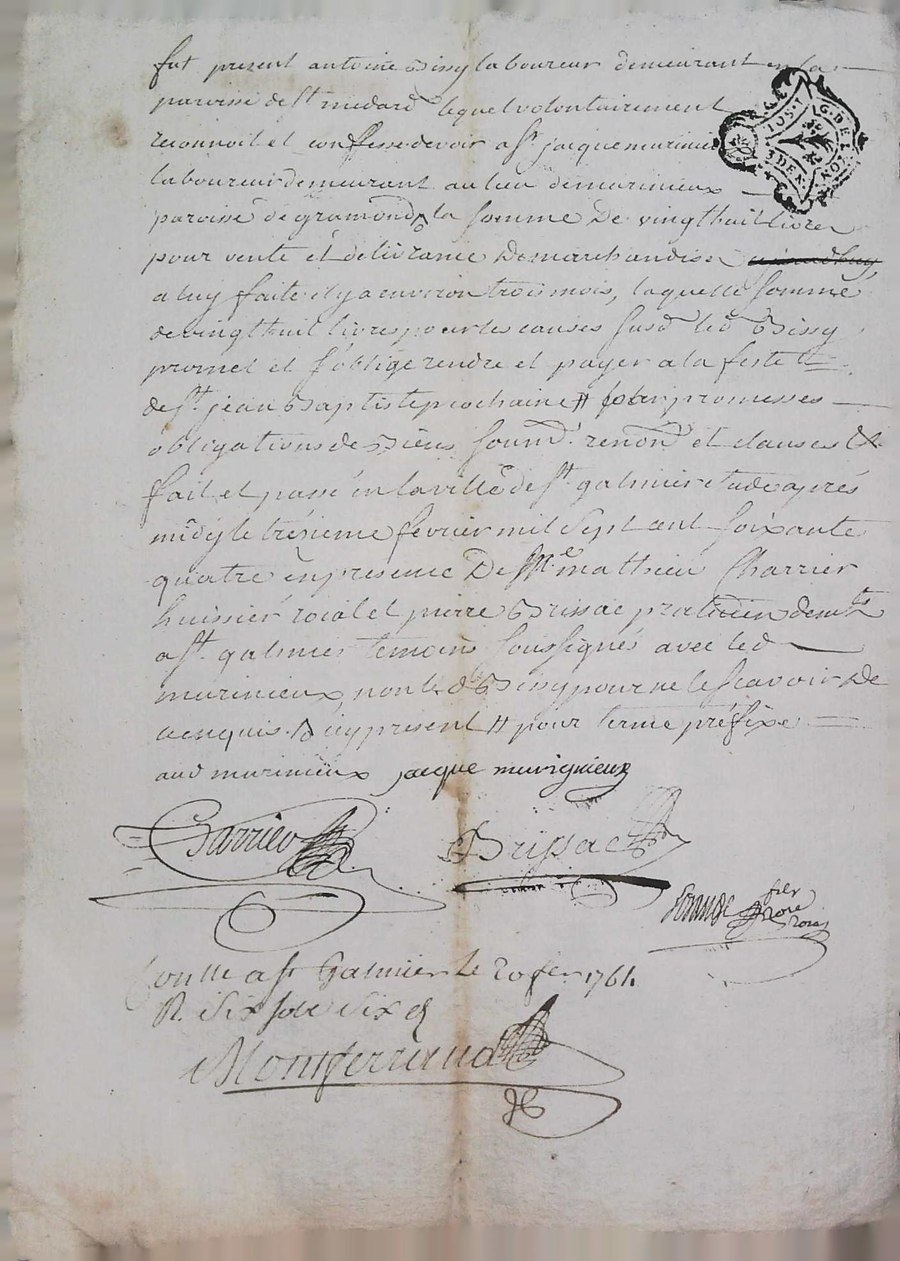 fut present antoine Bissy laboureur demeurant en la
paroisse de st medard lequel volontairement
reconnoit et confesse devoir a sr jacque murinieux
laboureur demeurant au lieu de murinieux
paroisse de gramond la somme de vingthuit livres
pour vente et delivrance de marchandise
a luy faite il y a environ trois mois, laquelle somme
de vingthuit livres pour les causes susd led Bissy
promet et s'oblige rendre et payer a la feste
de st jean Baptiste prochaine # promesses
obligations de Biens soumd. renond et clauses &
fait et passé en la ville de st galmier etude après
midy le trésieme février mil sept cent soixante
quatre en presence de Me mathieu Charrier
huissier roial et pierre Brissac praticien demts
a st galmier temoins soussignés avec led
murinieux, non led Bissy pour ne le scavoir de
ce enquis. # pour terme préfixe
aud murinieux jacque murignieux
Carrier
Brissac
G. DE LYON
10 S. 1
3 DEN
fils
nore
roial
Contlle a st Galmier le 20 fev 1764.
R. six sols six d
Montferrand